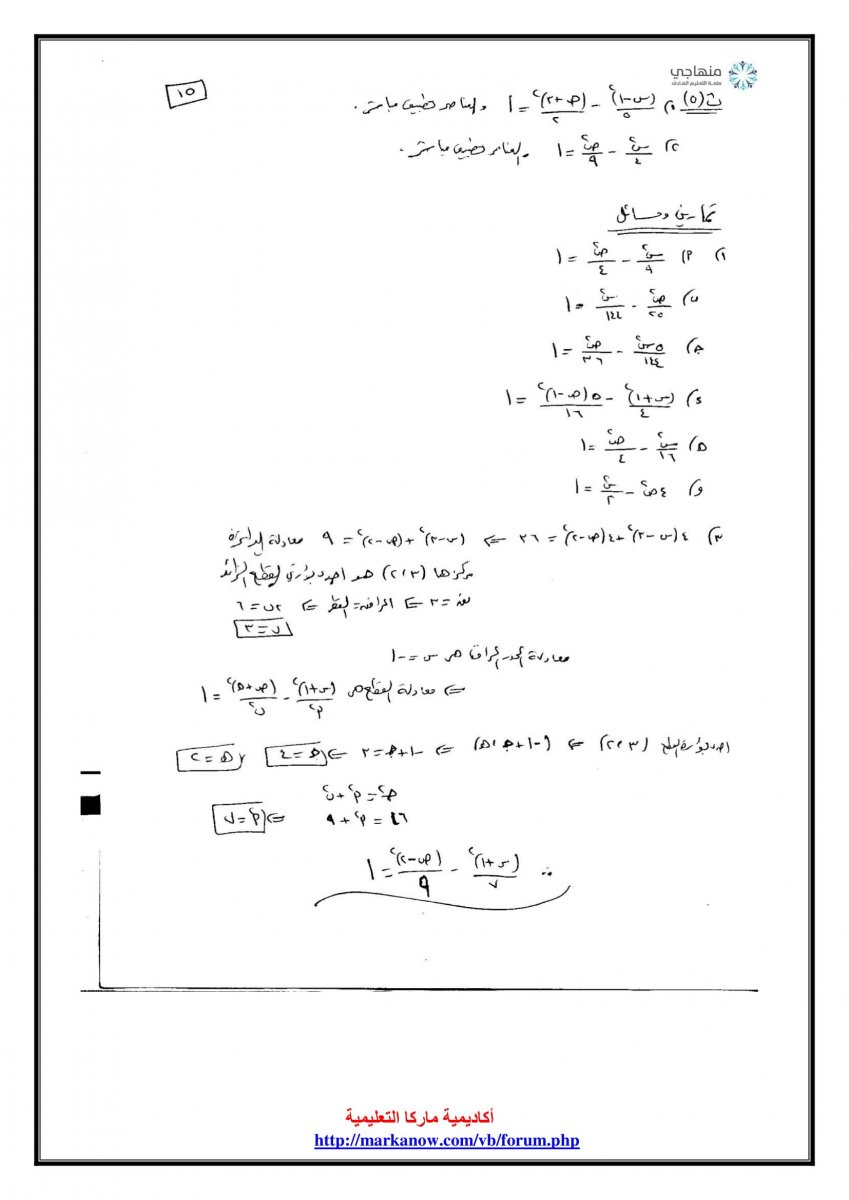 منهاجي
متعة التعليم الهادف
١٥
ت(٥) ١) (س-١)²/٥ - (ص+٢)²/٢ = ١ والعناصر تطبيق مباشر.
٢) س²/٤ - ص²/٩ = ١ والعناصر تطبيق مباشر.
تمارين ومسائل
١) ٢) س²/٩ - ص²/٤ = ١
ب) ص²/٢٥ - س²/١٤٤ = ١
ج) ٥س²/١٤٤ - ص²/٣٦ = ١
د) (س+١)²/٤ - ٥(ص-١)²/١٦ = ١
هـ) س²/١٦ - ص²/٤ = ١
و) ٤ص² - س²/٢ = ١
٣) ٤(س-٣)² + ٤(ص-٢)² = ٣٦ ⇐ (س-٣)² + (ص-٢)² = ٩ معادلة الدائرة
مركزها (٢،٣) هو احدى بؤرتي القطع الزائد
نق = ٣ ⇐ المرافق = القطر ⇐ ٢ب = ٦
ب = ٣
معادلة المحور المرافق هي س = -١
⇐ معادلة القطع هي (س+١)²/أ² - (ص+هـ)²/ب² = ١
احدى بؤرة القطع (٢،٣) ⇐ (-١+جـ ، هـ) ⇐ -١+جـ = ٣ ⇐ جـ = ٤ ، هـ = ٢
جـ² = أ² + ب²
١٦ = أ² + ٩ ⇐ أ² = ٧
∴ (س+١)²/٧ - (ص-٢)²/٩ = ١
أكاديمية ماركا التعليمية
http://markanow.com/vb/forum.php